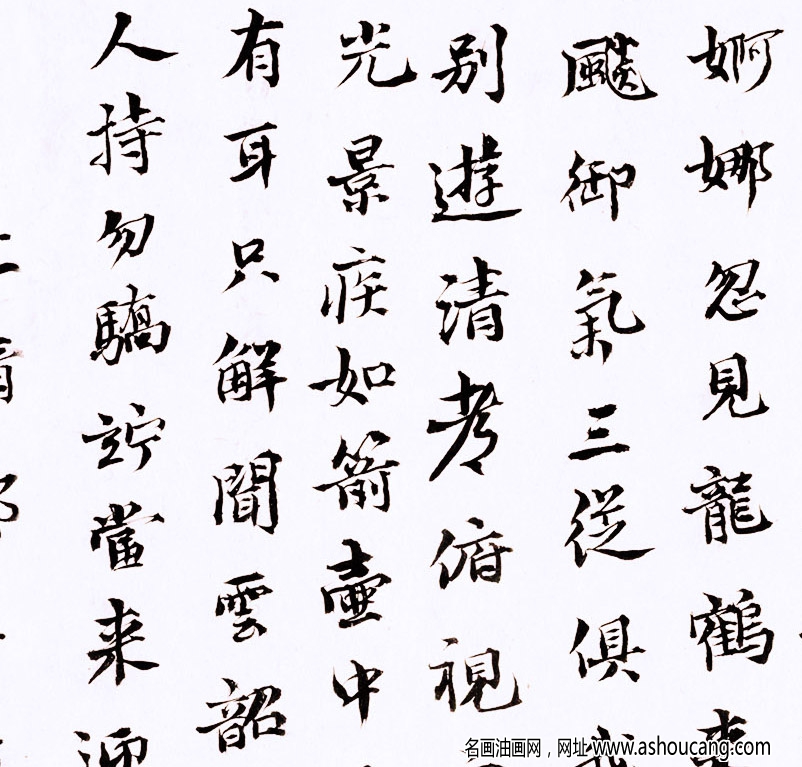 婀娜忽見龍鶴來
飈御氣三從俱我
別遊清考俯視
光景疾如箭壺中
有耳只解聞雲韶
人持勿驕竚當来迎
名画油画网，网址 www.ashoucang.com